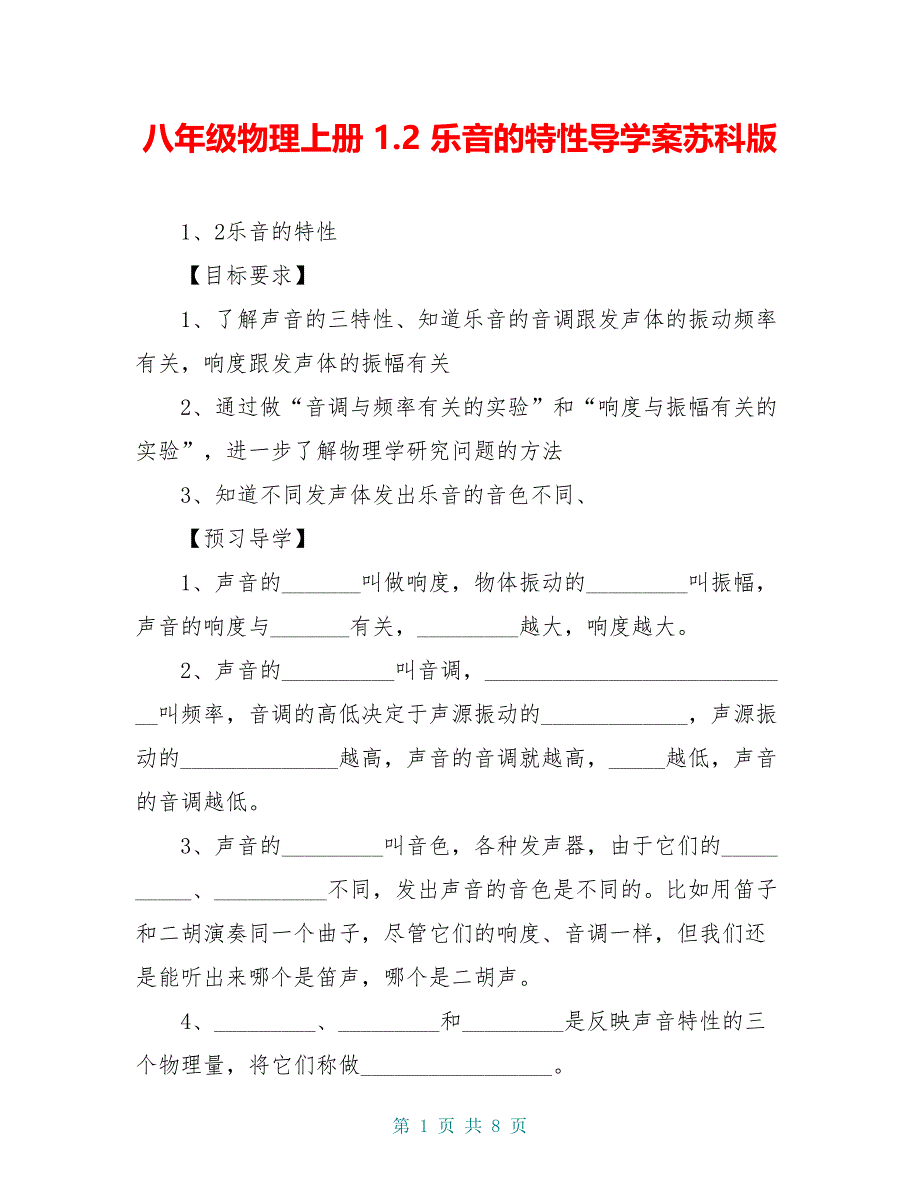 八年级物理上册 1.2 乐音的特性导学案苏科版
1、2乐音的特性
【目标要求】
1、了解声音的三特性、知道乐音的音调跟发声体的振动频率
有关，响度跟发声体的振幅有关
2、通过做“音调与频率有关的实验”和“响度与振幅有关的
实验”，进一步了解物理学研究问题的方法
3、知道不同发声体发出乐音的音色不同、
【预习导学】
1、声音的_______叫做响度，物体振动的_________叫振幅，
声音的响度与_______有关，_________越大，响度越大。
2、声音的__________叫音调，__________________________
__叫频率，音调的高低决定于声源振动的_____________，声源振
动的______________越高，声音的音调就越高，_____越低，声音
的音调越低。
3、声音的_________叫音色，各种发声器，由于它们的_____
_____、__________不同，发出声音的音色是不同的。比如用笛子
和二胡演奏同一个曲子，尽管它们的响度、音调一样，但我们还
是能听出来哪个是笛声，哪个是二胡声。
4、_________、_________和_________是反映声音特性的三
个物理量，将它们称做_________________。
第 1 页 共 8 页